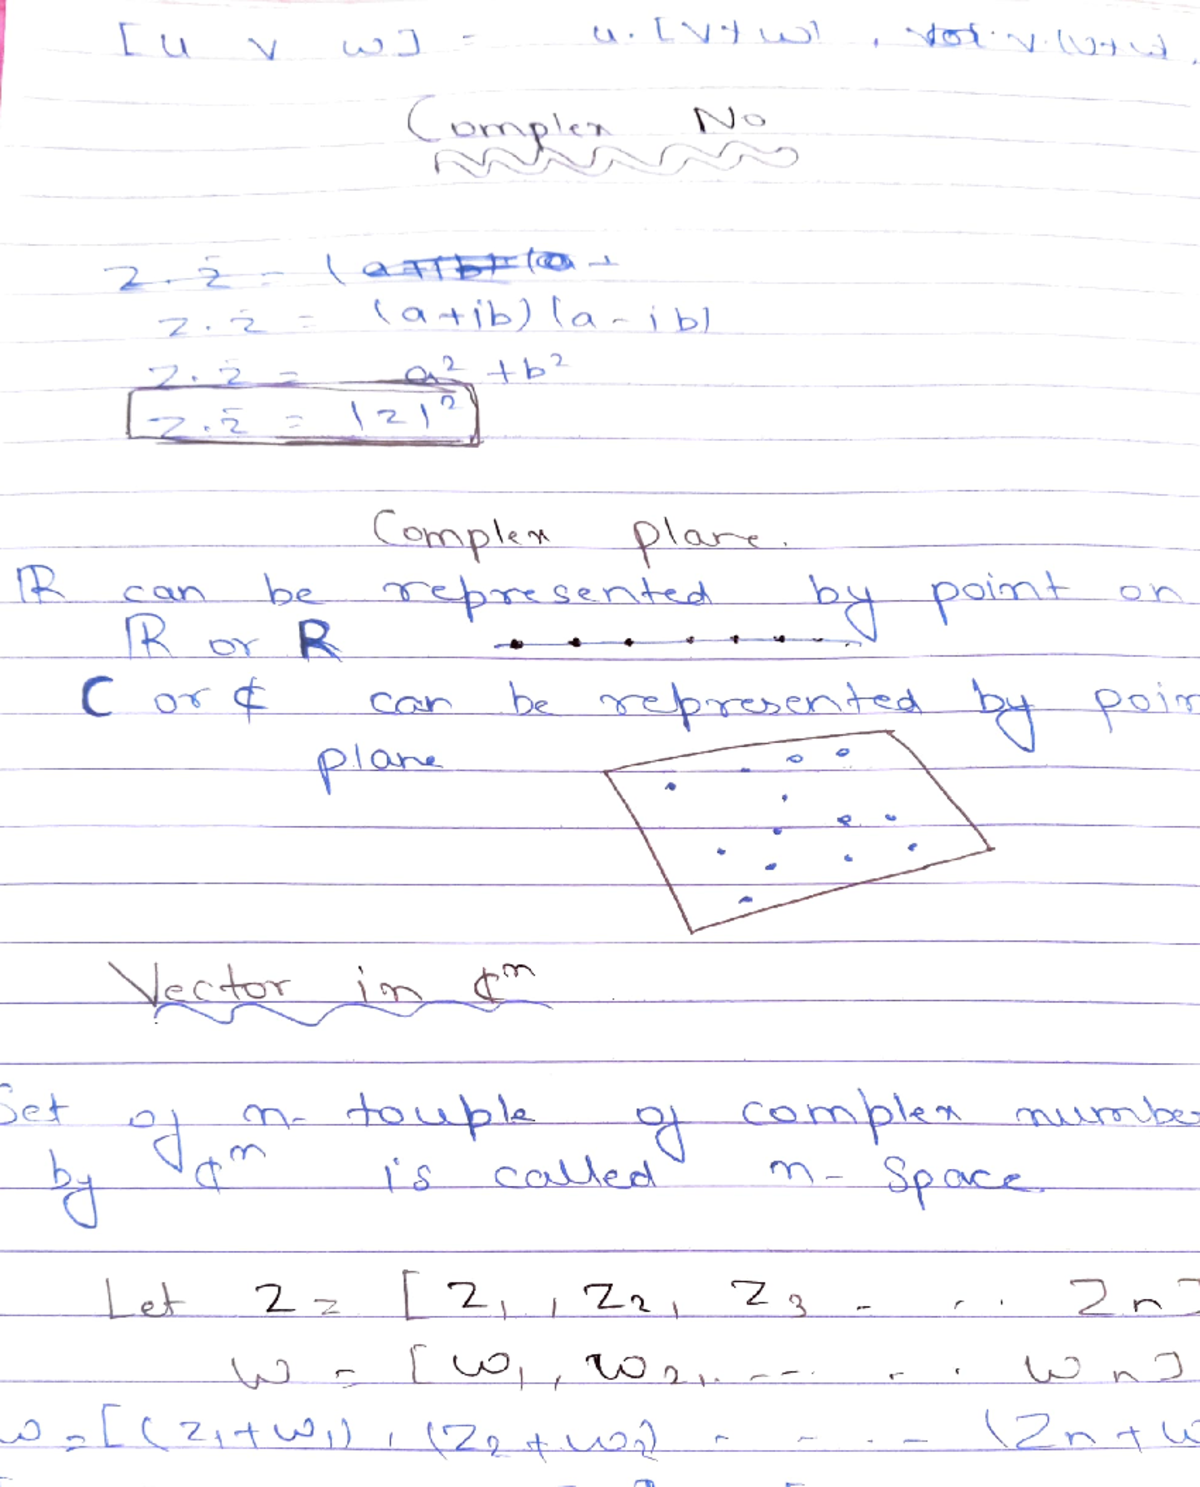 [u v w] = u. [v+w] , v.(u+w)
Complex No
z.z̄ = (a+ib)+(a +
z.z̄ = (a+ib) (a-ib)
z.z̄ = a² + b²
z.z̄ = |z|²
Complex plane.
ℝ can be represented by point on
ℝ or R
C or ₵ can be represented by poin
plane
Vector in ₵ⁿ
Set of n- touple of complex number
by ₵ⁿ is called n- Space
Let z = [ z₁ , z₂, z₃ - . . . zn]
w = [ w₁, w₂, . --- - . wn]
w = [(z₁+w₁) , (z₂+w₂) - - . - (zn+w